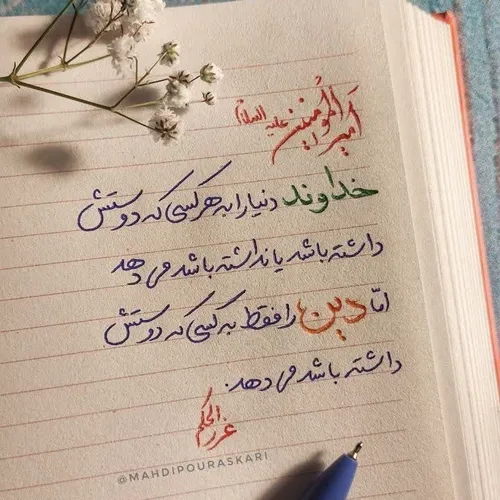 امیرالمؤمنین علیه السلام
خداوند دنیا را به هر کسی که دوستش
داشته باشد یا نداشته باشد می دهد
امّا دین را فقط به کسی که دوستش
داشته باشد می دهد.
غررالحکم
@MAHDIPOURASKARI